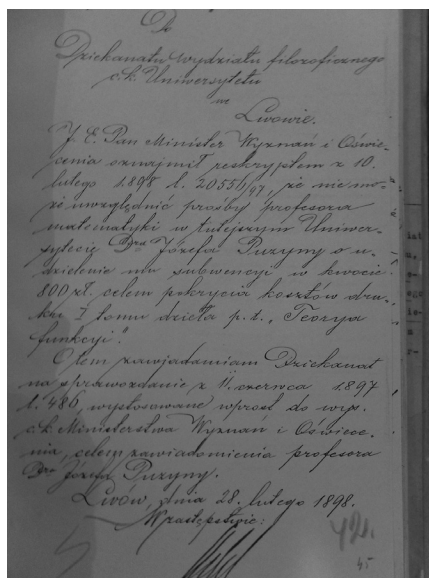 Do
Dziekanatu wydziału filozoficznego
c.k. Uniwersytetu
we
Lwowie.
J. E. Pan Minister Wyznań i Oświe-
cenia oznajmił reskryptem z 10.
lutego 1898 l. 20556/97, że nie mo-
że uwzględnić prośby profesora
matematyki w tutejszym Uniwer-
sytecie Dra Józefa Puzyny o u-
dzielenie mu subwencyi w kwocie
800 zł. celem pokrycia kosztów dru-
ku I tomu dzieła p.t. „Teorya
funkcyi".
O tem zawiadamiam Dziekanat
na sprawozdanie z 11. czerwca 1897
l. 486, wystosowane wprost do wys.
c.k. Ministerstwa Wyznań i Oświece-
nia, celem zawiadomienia profesora
Dra Józefa Puzyny.
Lwów, dnia 28. lutego 1898.
W zastępstwie:
45